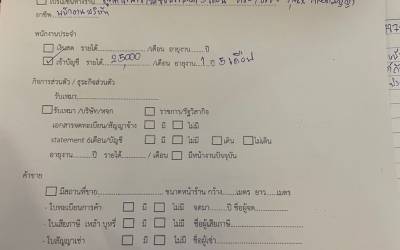 อาชีพ..พนักงานบริษัท
พนักงานประจำ
เงินสด รายได้............/เดือน อายุงาน.......ปี
เข้าบัญชี รายได้ 25,000 /เดือน อายุงาน 1 ปี 5 เดือน
กิจการส่วนตัว / ธุระกิจส่วนตัว
รับเหมา
รับเหมา /บริษัท/หจก ราชการ/รัฐวิสากิจ
เอกสารจดทะเบียน/สัญญาจ้าง มี ไม่มี
statement 6เดือน/บัญชี มี ไม่มี เดิน ไม่เดิน
อายุงาน.........ปี รายได้............../ เดือน มีหน้างานปัจจุบัน
ค้าขาย
มีสถานที่ขาย..............ขนาดหน้าร้าน กว้าง.......เมตร ยาว.......เมตร
- ใบทะเบียนการค้า มี ไม่มี จดมา.......ปี ชื่อผู้จด
- ใบเสียภาษี เหล้า บุหรี่ มี ไม่มี ชื่อผู้เสียภาษี
- ใบสัญญาเช่า มี ไม่มี ชื่อผู้เช่า